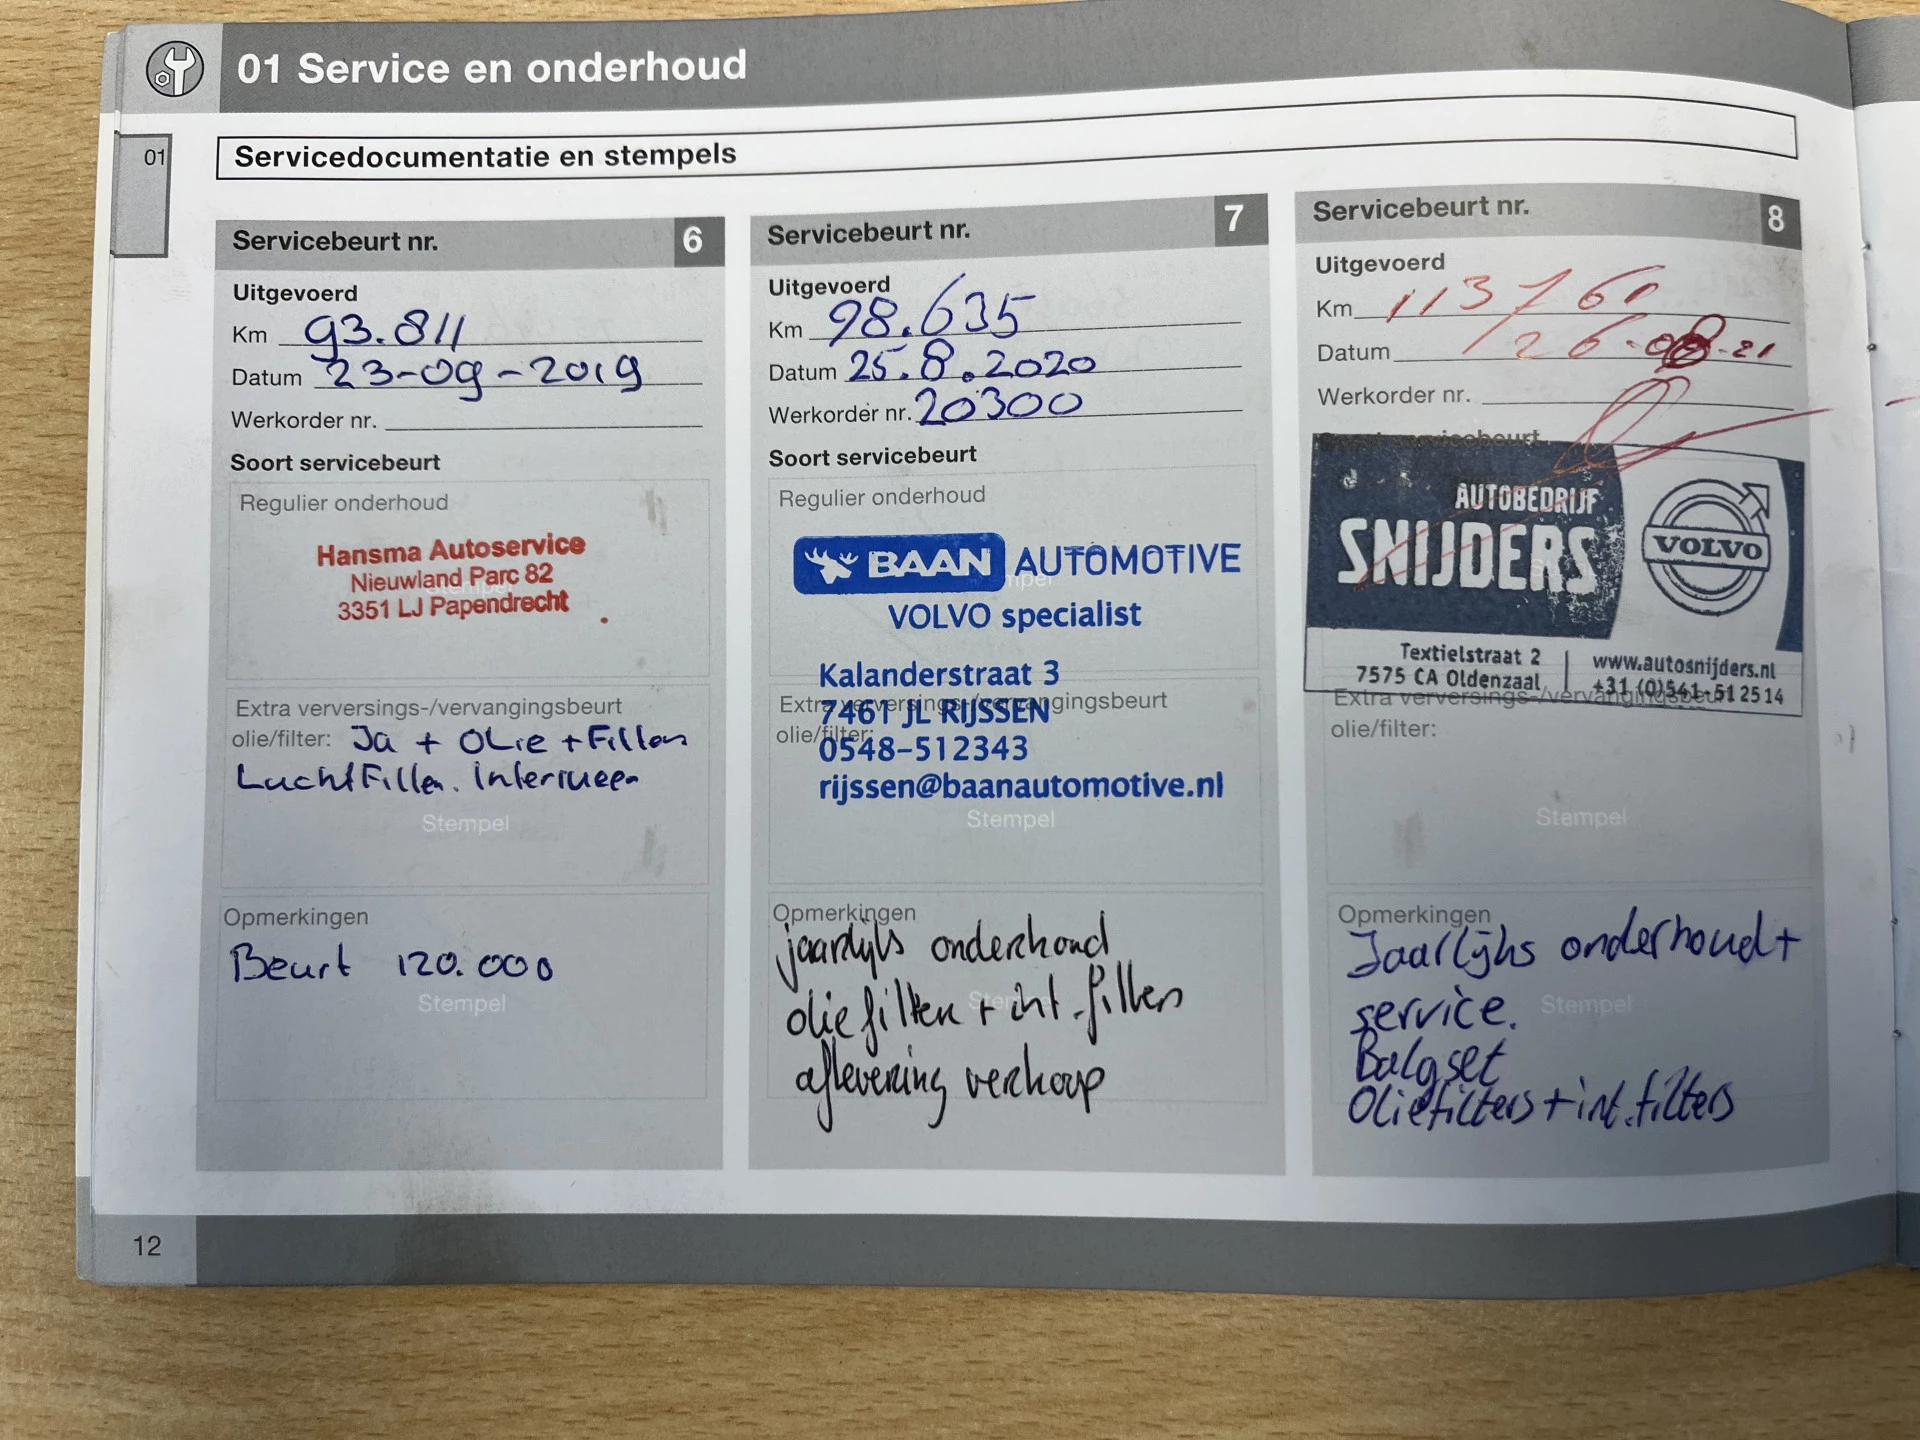 01 Service en onderhoud
01
Servicedocumentatie en stempels
Servicebeurt nr. 6
Uitgevoerd
Km 93.811
Datum 23-09-2019
Werkorder nr.
Soort servicebeurt
Regulier onderhoud
Hansma Autoservice
Nieuwland Parc 82
3351 LJ Papendrecht
Extra verversings-/vervangingsbeurt
olie/filter: Ja + OLie + Filters
LuchtFilter. Interieur
Stempel
Opmerkingen
Beurt 120.000
Stempel
Servicebeurt nr. 7
Uitgevoerd
Km 98.635
Datum 25.8.2020
Werkorder nr. 20300
Soort servicebeurt
Regulier onderhoud
BAAN AUTOMOTIVE
VOLVO specialist
Kalanderstraat 3
Extra verversings-/vervangingsbeurt
7461 JL RIJSSEN
olie/filter:
0548-512343
rijssen@baanautomotive.nl
Stempel
Opmerkingen
jaarlijks onderhoud
oliefilter + int.filters
Stempel
aflevering verkoop
Servicebeurt nr. 8
Uitgevoerd
Km 113761
Datum 26-08-21
Werkorder nr.
Soort servicebeurt
AUTOBEDRIJF
SNIJDERS
VOLVO
Textielstraat 2
7575 CA Oldenzaal
www.autosnijders.nl
+31 (0)541-512514
Extra verversings-/vervangingsbeurt
olie/filter:
Stempel
Opmerkingen
Jaarlijks onderhoud+
service.
Stempel
Balgset
Oliefilters + int.filters
12